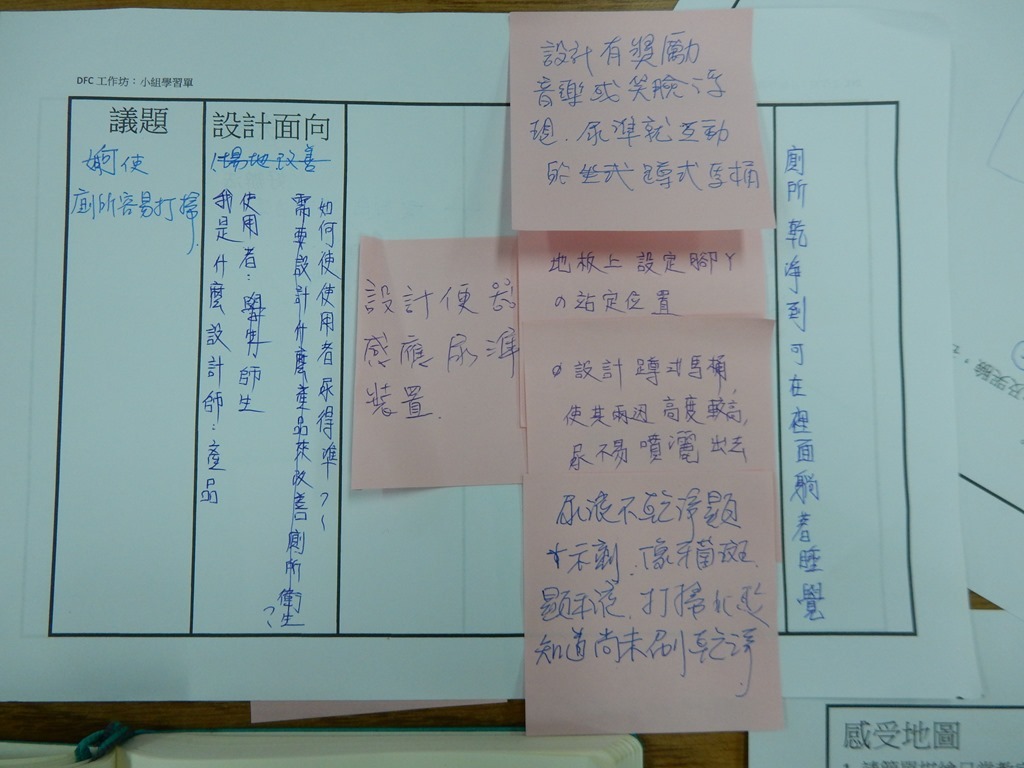 DFC 工作坊：小組學習單
議題
如何使
廁所容易打掃
設計面向
場地改善
如何使使用者尿得準？
需要設計什麼產品來改善廁所衛生？
使用者：學生師生
我是什麼設計師：產品
設計便器
感應尿準
裝置.
設計有獎勵
音樂或笑臉浮
現. 尿準就互動
的坐式蹲式馬桶
地板上設定腳丫
の站定位置
設計蹲式馬桶,
使其兩週高度較高,
尿不易噴灑出去
尿漬不乾淨顯
示劑. 像牙菌斑
顯示液. 打掃
知道尚未刷乾淨
廁所乾淨到可在裡面躺著睡覺
感受地圖